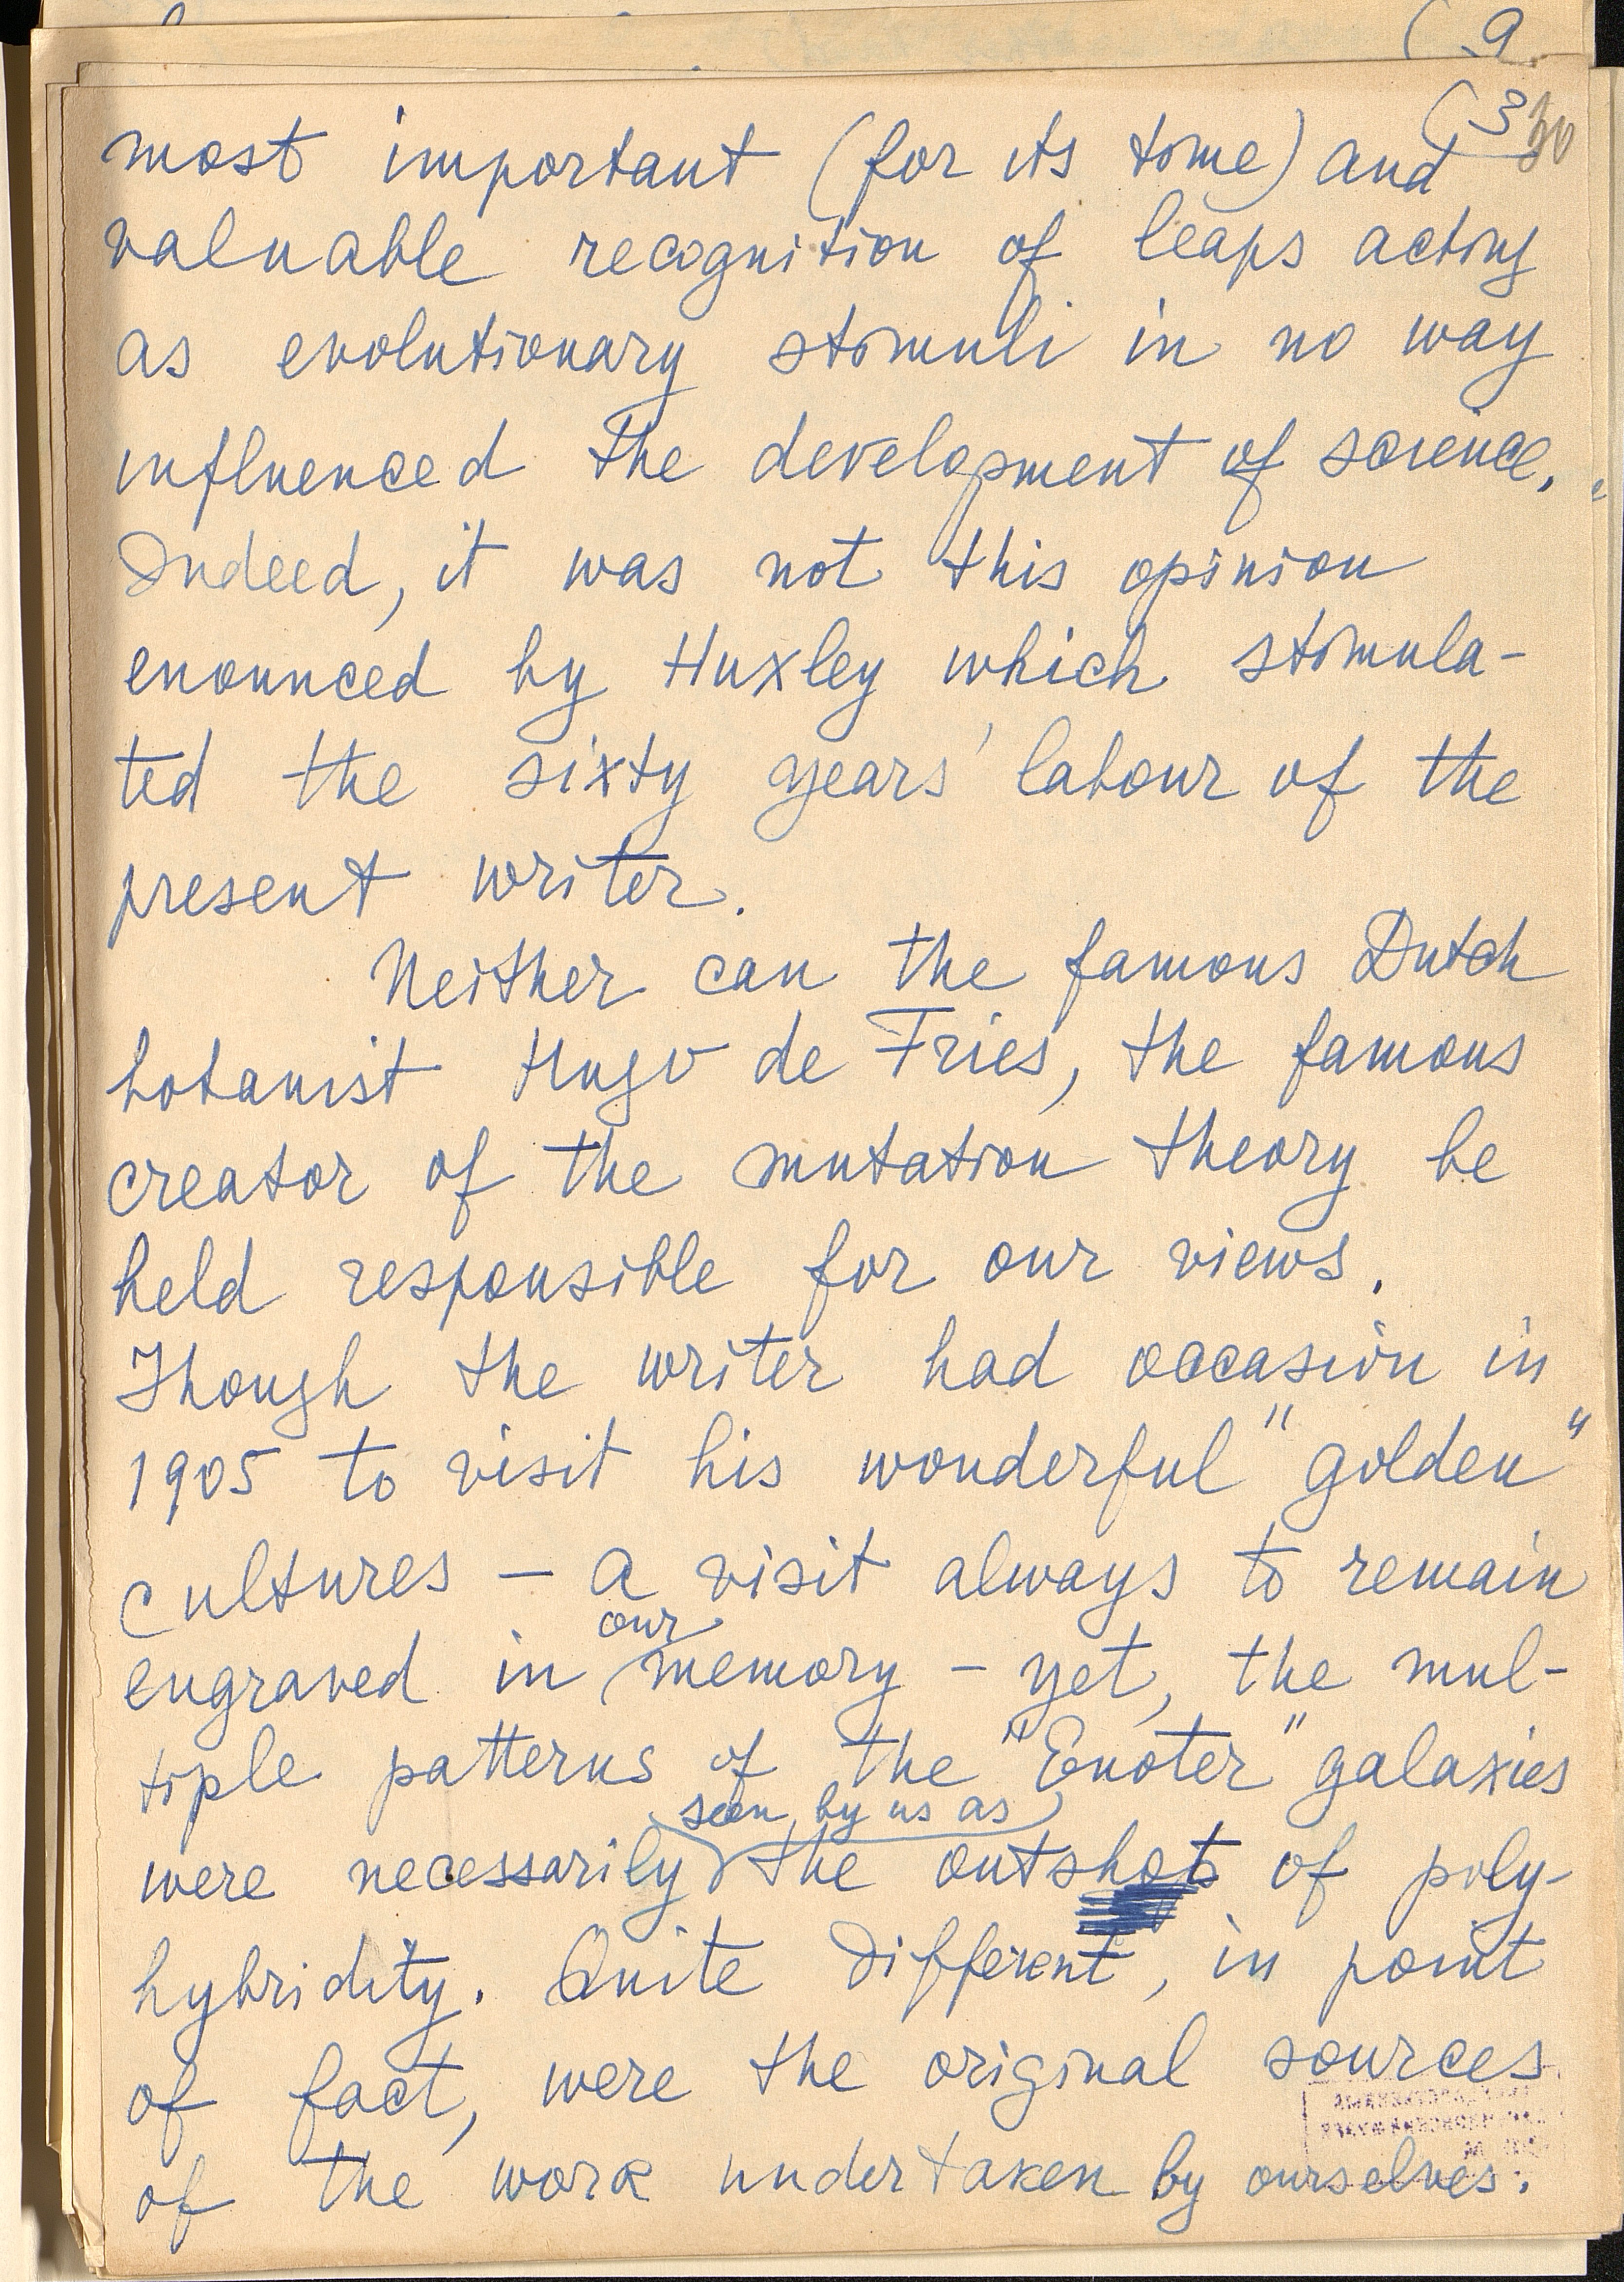 (9
(3 30
most important (for its time) and
valuable recognition of leaps acting
as evolutionary stimuli in no way
influenced the development of science.
Indeed, it was not this opinion
enounced by Huxley which stimula-
ted the sixty years' labour of the
present writer.
Neither can the famous Dutch
botanist Hugo de Fries, the famous
creator of the mutation theory be
held responsible for our views.
Though the writer had occasion in
1905 to visit his wonderful "golden"
cultures – a visit always to remain
our
engraved in memory – yet, the mul-
tiple patterns of the "Enoter" galaxies
seen by us as
were necessarily the outshots of poly-
hybridity. Quite different, in point
of fact, were the original sources
of the work undertaken by ourselves.